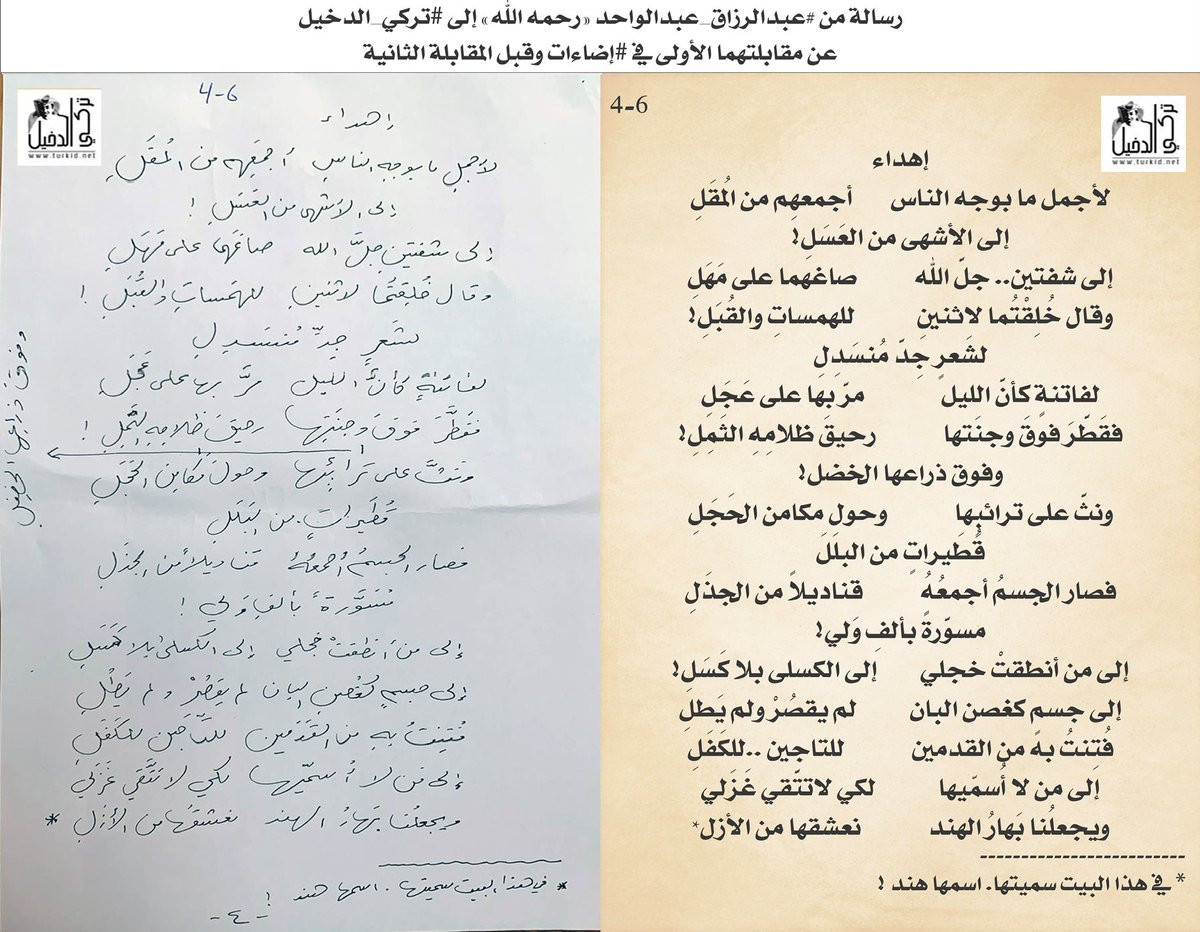 رسالة من #عبدالرزاق_عبدالواحد «رحمه الله» إلى #تركي_الدخيل
عن مقابلتهما الأولى في #إضاءات وقبل المقابلة الثانية
4-6
تركي الدخيل
www.turkid.net
إهداء
لأجمل ما بوجه الناس أجمعهِم من المُقَلِ
إلى الأشهى من العَسَلِ!
إلى شفتين.. جلّ الله صاغهما على مَهَلِ
وقال خُلِقْتُما لاثنينِ للهمساتِ والقُبَلِ!
لشَعرٍ جِدّ مُنسَدِلِ
لفاتنةٍ كأنّ الليل مرّ بها على عَجَلِ
فقَطّرَ فوقَ وجنَتها رحيقَ ظلامِهِ الثمِلِ!
وفوق ذراعها الخضل!
ونثّ على ترائبِها وحول مكامن الحَجَلِ
قُطَيراتٍ من البلَلَ
فصار الجسمُ أجمعُهُ قناديلاً من الجذَلِ
مسوّرةً بألفِ وَلي!
إلى من أنطقتْ خجلي إلى الكسلى بلا كَسَلِ!
إلى جسم كغصن البان لم يقصُرْ ولم يَطلِ
فُتِنتُ بهِ من القدمين للتاجين ..للكَفَلِ
إلى من لا أُسمّيها لكي لاتتّقي غَزَلي
ويجعلُنا بَهارُ الهند نعشقها من الأزل*
* في هذا البيت سميتها. اسمها هند !
4-6
تركي الدخيل
www.turkid.net
إهداء
لأجملِ ما بوجهِ الناسِ أجمعِهِم من المُقَلِ
إلى الأشهى من العَسَلِ !
إلى شفتين جلَّ الله صاغَهما على مَهَلِ
وقال خُلِقتُما لاثنينِ للهمساتِ والقُبَلِ !
لشَعرٍ جِدِّ مُنسَدِلِ
لفاتنةٍ كأنَّ الليل مرَّ بها على عَجَلِ
فقَطَّرَ فوقَ وجنَتِها رحيقَ ظلامِهِ الثَّمِلِ !
وفوقَ ذراعِها الخضِلِ
ونثَّ على ترائبِها وحولَ مَكامِنِ الحَجَلِ
قُطَيراتٍ من البَلَلِ
فصار الجسمُ أجمعُهُ قناديلاً من الجذَلِ
مُسَوَّرةً بألفِ وَلي !
إلى من أنطقتْ خجلي إلى الكسلى بلا كَسَلِ
إلى جسمٍ كغصنِ البان لم يَقصُرْ ولم يَطُلِ
فُتِنتُ بهِ من القَدَمين للتّاجَين للكَفَلِ
إلى مَن لا أُسمّيها لكي لا تتَّقي غَزَلي
ويجعلُنا بَهارُ الهند نعشقُها من الأزلِ *
* في هذا البيت سميتها. اسمها هند !
-٤-